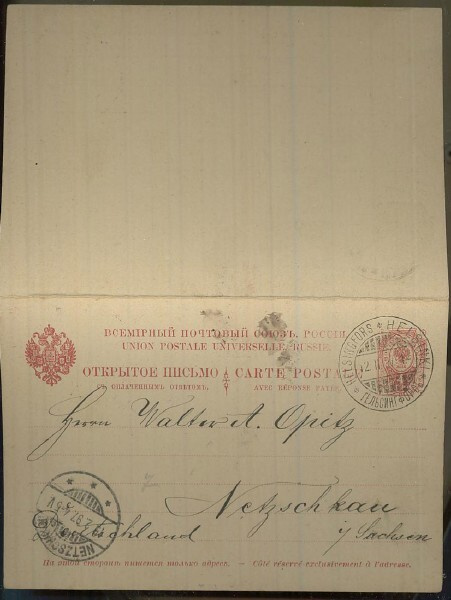 ВСЕМІРНЫЙ ПОЧТОВЫЙ СОЮЗЪ. РОССІЯ
UNION POSTALE UNIVERSELLE. RUSSIE.
ОТКРЫТОЕ ПИСЬМО CARTE POSTA
СЪ ОПЛАЧЕННЫМЪ ОТВѢТОМЪ. AVEC RÉPONSE PAYÉE.
HELSINGFORS HELSINKI
ГЕЛЬСИНГФОРСЪ
Herrn Walter A. Opitz
Netzschkau
i/ Sachsen
schland
NETZSCHKAU
На этой сторонѣ пишется только адресъ. — Côté réservé exclusivement à l'adresse.